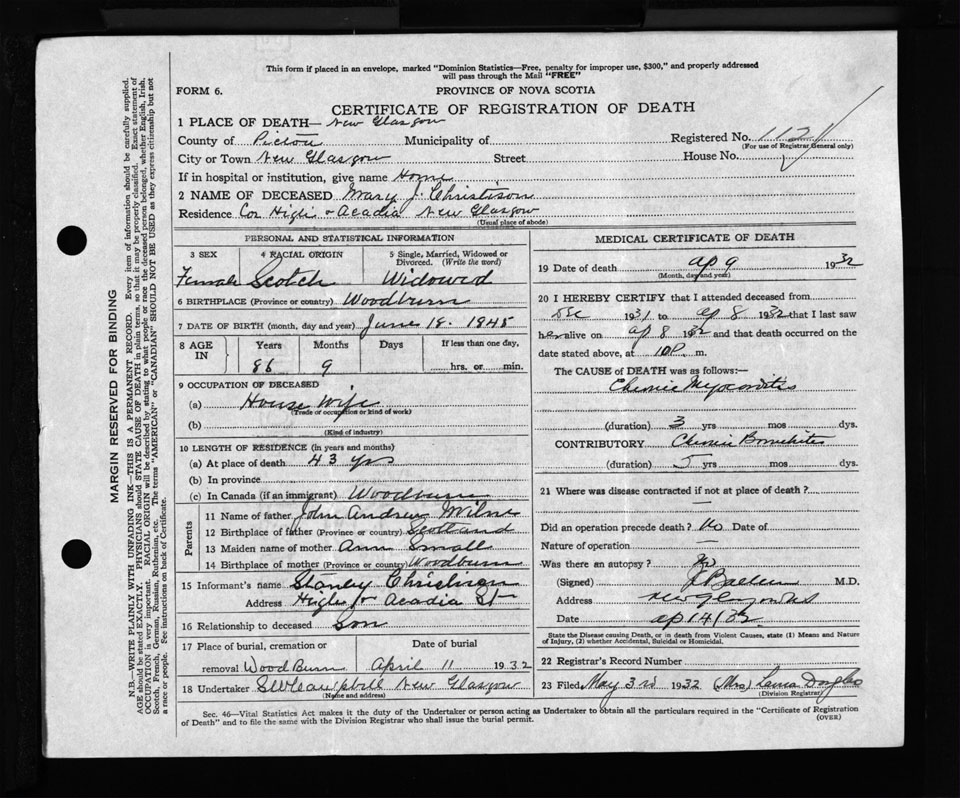 This form if placed in an envelope, marked "Dominion Statistics—Free, penalty for improper use, $300," and properly addressed
will pass through the Mail "FREE"
FORM 6.
PROVINCE OF NOVA SCOTIA
CERTIFICATE OF REGISTRATION OF DEATH
1 PLACE OF DEATH— New Glasgow
County of Pictou Municipality of Registered No. 1121
(For use of Registrar General only)
City or Town New Glasgow Street House No.
If in hospital or institution, give name Home
2 NAME OF DECEASED Mary J. Christison
Residence Cor High + Acadia New Glasgow
(Usual place of abode)
PERSONAL AND STATISTICAL INFORMATION
3 SEX 4 RACIAL ORIGIN 5 Single, Married, Widowed or
Divorced. (Write the word)
Female Scotch Widowed
6 BIRTHPLACE (Province or country) Woodburn
7 DATE OF BIRTH (month, day and year) June 18. 1945
8 AGE IN Years Months Days If less than one day,
86 9 hrs. or min.
9 OCCUPATION OF DECEASED
(a) House Wife
(Trade or occupation or kind of work)
(b)
(Kind of industry)
10 LENGTH OF RESIDENCE (in years and months)
(a) At place of death 43 yrs
(b) In province
(c) In Canada (if an immigrant) Woodburn
Parents
11 Name of father John Andrew Milne
12 Birthplace of father (Province or country) Scotland
13 Maiden name of mother Ann Small
14 Birthplace of mother (Province or country) Woodburn
15 Informant's name Stanley Christison
Address High + Acadia St
16 Relationship to deceased Son
17 Place of burial, cremation or Date of burial
removal Wood Burn April 11 1932
18 Undertaker Campbell New Glasgow
(Name and address)
MEDICAL CERTIFICATE OF DEATH
19 Date of death ap 9 1932
(Month, day and year)
20 I HEREBY CERTIFY that I attended deceased from
Dec 1931 to ap 8 1932 that I last saw
her alive on ap 8 1932 and that death occurred on the
date stated above, at 10 P. m.
The CAUSE of DEATH was as follows:—
Chronic Myocarditis
(duration) 3 yrs mos dys.
CONTRIBUTORY Chronic Bronchitis
(duration) 5 yrs mos dys.
21 Where was disease contracted if not at place of death?
—
Did an operation precede death? No Date of
Nature of operation —
Was there an autopsy? No
(Signed) M.D.
Address New Glasgow NS
Date ap 14/32
State the Disease causing Death, or in death from Violent Causes, state (1) Means and Nature
of Injury, (2) whether Accidental, Suicidal or Homicidal.
22 Registrar's Record Number
23 Filed May 3rd 1932 (Mrs) Laura Douglas
(Division Registrar)
Sec. 46—Vital Statistics Act makes it the duty of the Undertaker or person acting as Undertaker to obtain all the particulars required in the "Certificate of Registration
of Death" and to file the same with the Division Registrar who shall issue the burial permit.
(OVER)
MARGIN RESERVED FOR BINDING
N.B.—WRITE PLAINLY WITH UNFADING INK—THIS IS A PERMANENT RECORD. Every item of information should be carefully supplied.
AGE should be stated EXACTLY. PHYSICIANS should STATE CAUSE OF DEATH in plain terms, so that it may be properly classified. Exact statement of
OCCUPATION is very important. RACIAL ORIGIN will be described by stating to what people or race the deceased person belonged, whether English, Irish,
Scotch, French, German, Russian, Ruthenian, etc. The terms "AMERICAN" or "CANADIAN" SHOULD NOT BE USED as they express citizenship but not
a race or people. See instructions on back of Certificate.